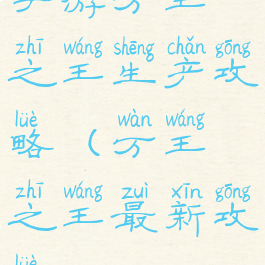 手游万王
zhī wáng shēng chǎn gōng
之王生产攻
lüè wàn wáng
略（万王
zhī wáng zuì xīn gōng
之王最新攻
lüè